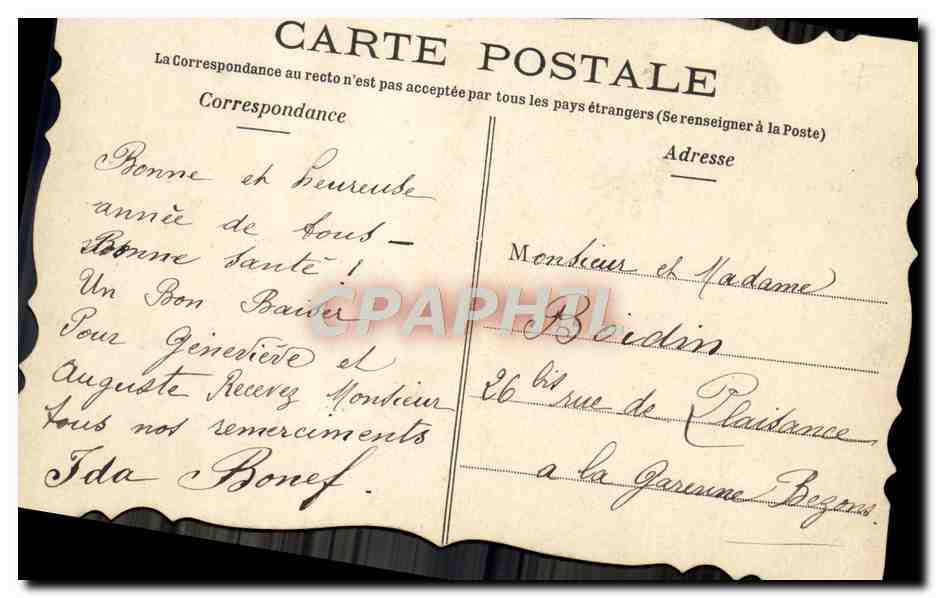 CARTE POSTALE
La Correspondance au recto n'est pas acceptée par tous les pays étrangers (Se renseigner à la Poste)
Correspondance
Bonne et heureuse
année de tous —
Bonne Santé !
Un Bon Baiser
Pour Géneviève et
Auguste Recevez Monsieur
tous nos remerciments
Ida Bonef.
Adresse
Monsieur et Madame
Boidin
26 bis rue de Plaisance
a la Garenne Bezons.
CPAPHIL